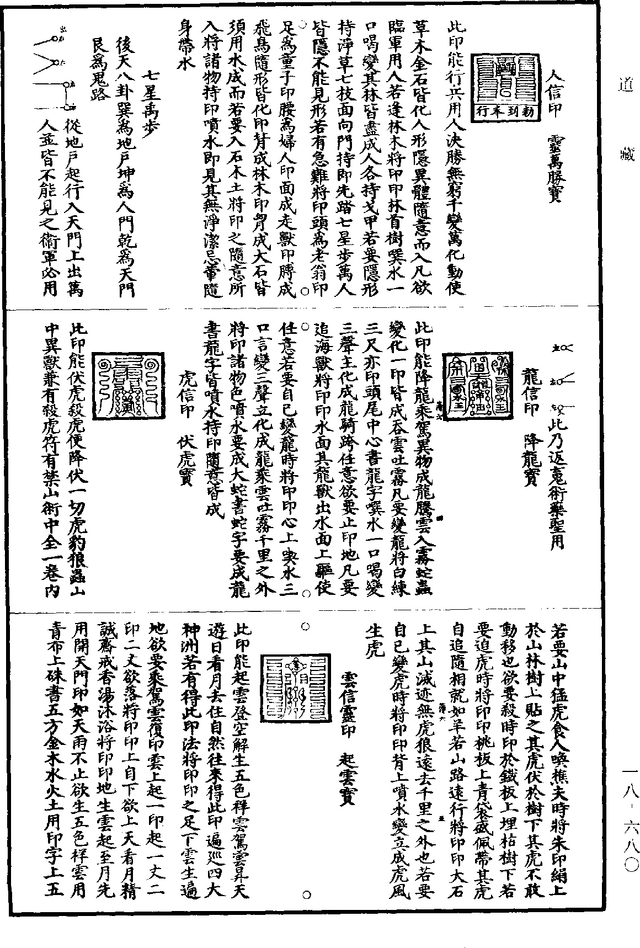 道藏
人信印　靈萬勝寶
勅到奉行
此印能行兵用人決勝無窮千變萬化動使
草木金石皆化人形隱異體隨意而入凡欲
臨軍用人若逢林木將印印林首樹噀水一
口喝變其林皆盡成人各持戈甲若要隱形
持淨草七枝面向門持即先踏七星步萬人
皆隱不能見形若有急難將印頭為老翁印
足為童子印腰為婦人印面成走獸印膊成
飛鳥隨形皆化印背成林木印臂成大石皆
須用水成而若要入石木土將印之隨意所
入將諸物持印噴水即見其無淨潔忌葷隨
身帶水
七星禹步
後天八卦巽為地戶坤為人門乾為天門
艮為鬼路
從地戶起行入天門上出萬
人並皆不能見之術軍必用
此乃返魂術藥聖用
龍信印　降龍寶
此印能降龍乘駕異物成龍騰雲入霧蛇蟲
變化一印皆成吞雲吐霧凡要變龍將白練
三尺亦印頭尾中心書龍字噀水一口喝變
三聲主化成龍騎跨任意欲要止印地凡要
追海獸將印印水面其龍獸出水面上驅使
任意若要自己變龍時將印印心上噀水三
口言變三聲立化成龍乘雲吐霧千里之外
將印諸物色噴水要成大蛇書蛇字要成龍
書龍字皆噴水持印隨意皆成
虎信印　伏虎寶
此印能伏虎殺虎便降伏一切虎豹狼蟲山
中異獸兼有殺虎符有禁山術中全一卷內
若要山中猛虎食人喚樵夫時將朱印絹上
於山林樹上貼之其虎伏於樹下其虎不敢
動移也欲要殺時印於鐵板上埋枯樹下若
要迫虎時將印印桃板上青袋盛佩帶其虎
自追隨相就如羊若山路遠行將印印大石
上其山滅迹無虎狼遠去千里之外也若要
自己變虎時將印印背上噴水變立成虎風
生虎
雲信靈印　起雲寶
此印能起雲登空解生五色祥雲駕雲昇天
遊日看月去住自然往來得此印遍巡四大
神洲若有得此印法將印印之足下雲生遍
地欲要乘駕雲復印雲上起一印起一丈二
印二丈欲落將印印上自下欲上天看月精
誠齋戒香湯沐浴將印印地生雲起至月先
用開天門印如天雨不止欲生五色祥雲用
青布上硃書五方金木水火土用印字上五
一八-六八〇